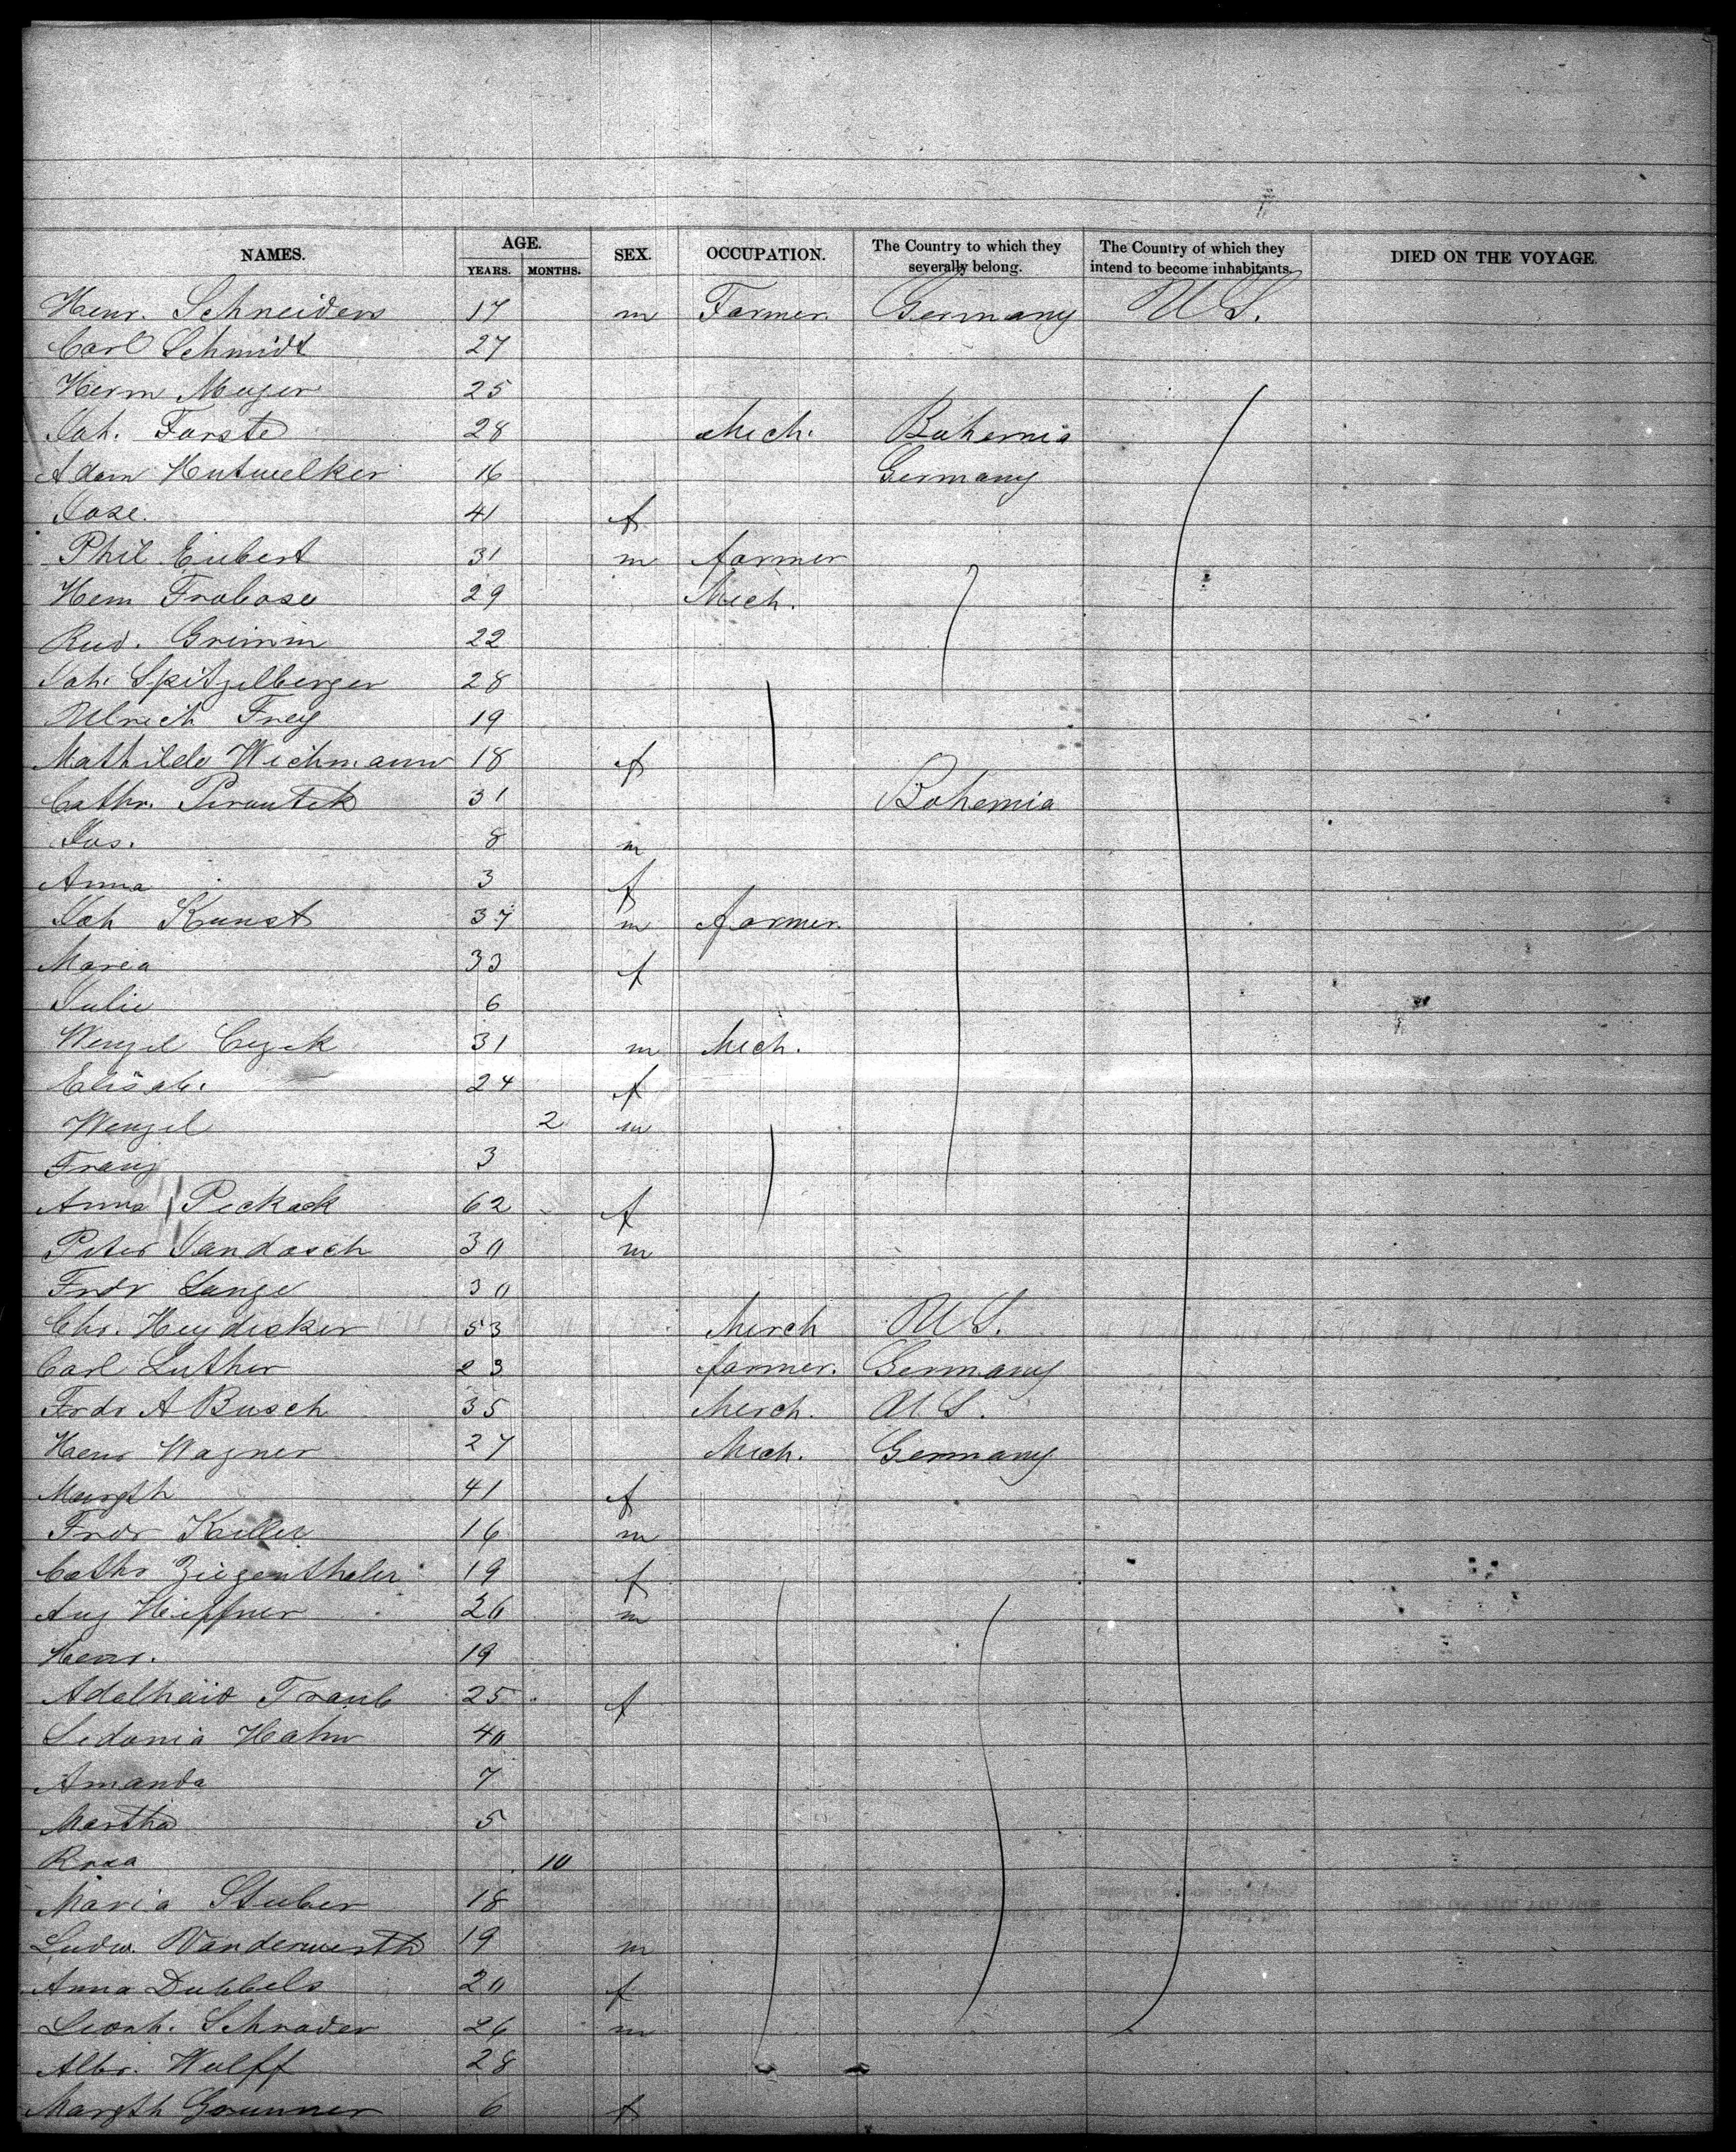 NAMES. AGE. SEX. OCCUPATION. The Country to which they severally belong. The Country of which they intend to become inhabitants. DIED ON THE VOYAGE.
YEARS. MONTHS.
Henr. Schneiders 17 m Farmer. Germany U S.
Carl Schmidt 27
Herm Meyer 25
Joh. Forste 28 Mech. Bohemia
Adam Hutwelker 16 Germany
Jose. 41 f
Phil Eubert 31 m farmer
Hem Frobose 29 Mech.
Rud. Grimm 22
Joh. Spitzelberger 28
Ulrich Frey 19
Mathilde Wichmann 18 f
Cathr. 31 Bohemia
Jos. 8 m
Anna 3 f
Joh Kunst 37 m farmer.
Maria 33 f
Julie 6
Wenzel 31 m Mech.
Elisab. 24 f
Wenzel 2 m
Franz 3
Anna Peckack 62 f
Peter Jandosch 30 m
Frdr Lange 30
Chr. Heydecker 53 Merch U S.
Carl Luther 23 farmer. Germany
Frdr A Busch 35 Merch. U S.
Henr Wagner 27 Mech. Germany
Margth 41 f
Frdr Keller 16 m
Cathr Ziegenthaler 19 f
Aug Heffner 26 m
Henr. 19
Adelheid Traub 25 f
Sidonia Hahn 40
Amanda 7
Martha 5
Rosa 10
Maria Stuber 18
Ludw. Vanderwerth 19 m
Anna Dubbels 20 f
Leonh. Schrader 26 m
Albr. Wulff 28
Margth Grunner 6 f